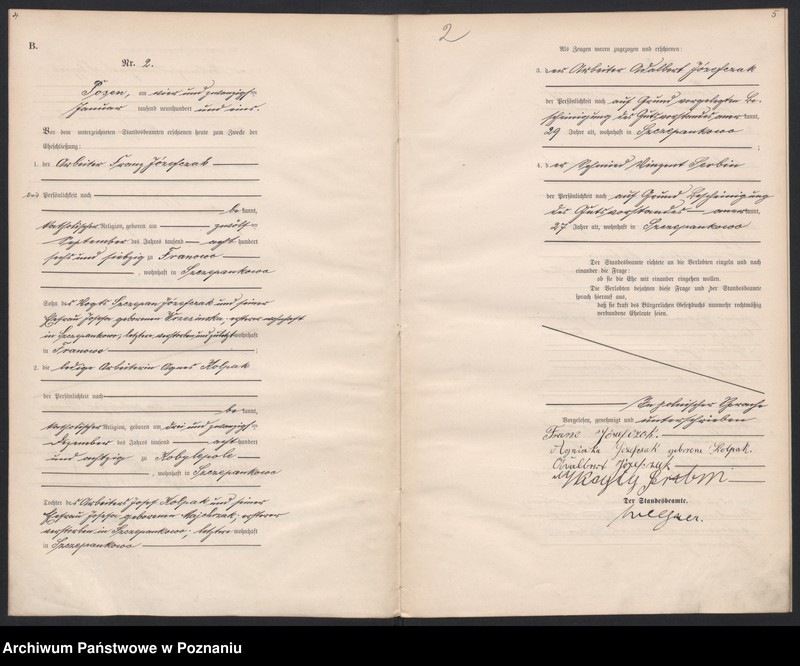 4
B.
Nr. 2.
Posen, am vier und zwanzigsten
Januar tausend neunhundert und eins.
Vor dem unterzeichneten Standesbeamten erschienen heute zum Zwecke der
Eheschließung:
1. der Arbeiter Franz Józefczak
der Persönlichkeit nach
be kannt,
katholischer Religion, geboren am zwölften
September des Jahres tausend acht hundert
sechs und siebzig zu Franowo
, wohnhaft in Szczepankowo
Sohn des Vogts Szczepan Józefczak und seiner
Ehefrau Josefa geborenen, ersterer wohnhaft
in Szczepankowo, letztere verstorben und zuletzt wohnhaft
in Franowo ;
2. die ledige Arbeiterin Agnes Kolpak
der Persönlichkeit nach
be kannt,
katholischer Religion, geboren am drei und zwanzigsten
Dezember des Jahres tausend acht hundert
und achtzig zu Kobylepole
, wohnhaft in Szczepankowo
Tochter des Arbeiters Josef Kolpak und seiner
Ehefrau Josefa geborenen Majchrzak, ersterer
verstorben in Szczepankowo, letztere wohnhaft
in Szczepankowo
2
5
Als Zeugen waren zugezogen und erschienen:
3. der Arbeiter Adalbert Józefczak
der Persönlichkeit nach auf Grund vorgelegter Be-
scheinigung des Gutsvorstandes anerkannt,
29 Jahre alt, wohnhaft in Szczepankowo
;
4. der Schmied Vinzent Serbin
der Persönlichkeit nach auf Grund Bescheinigung
des Gutsvorstandes anerkannt,
27 Jahre alt, wohnhaft in Szczepankowo
Der Standesbeamte richtete an die Verlobten einzeln und nach
einander die Frage:
ob sie die Ehe mit einander eingehen wollen.
Die Verlobten bejahten diese Frage und der Standesbeamte
sprach hierauf aus,
daß sie kraft des Bürgerlichen Gesetzbuchs nunmehr rechtmäßig
verbundene Eheleute seien.
In polnischer Sprache
Vorgelesen, genehmigt und unterschrieben
Franc Józefczok.
Agniśka Jozefczak geborene Kolpak.
Adalbert Józefczyk
Serbin
Der Standesbeamte.
Archiwum Państwowe w Poznaniu